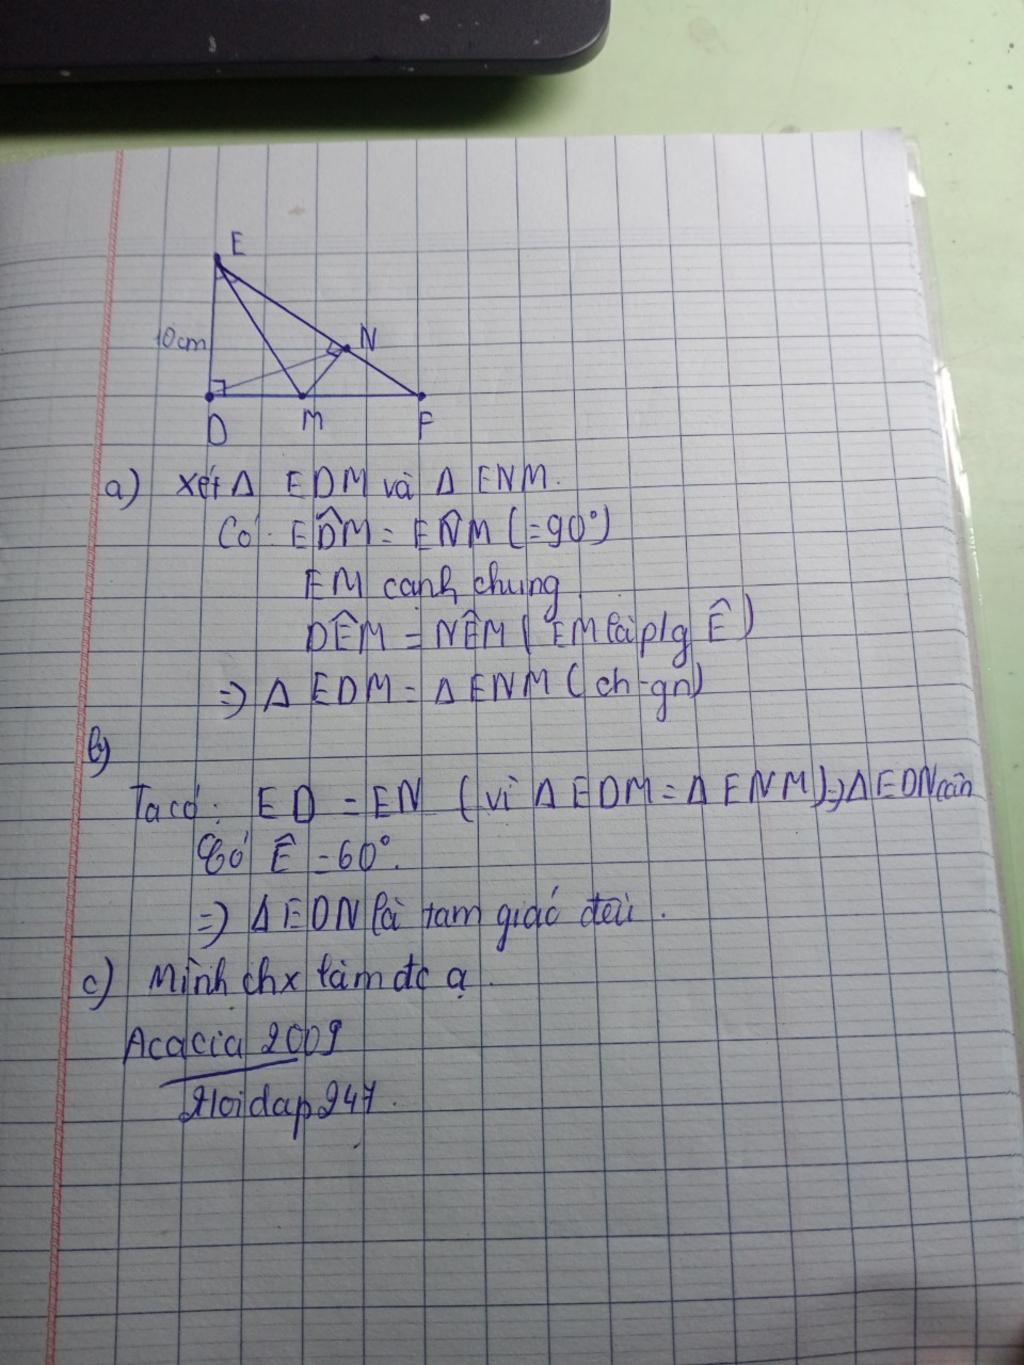 E
10cm
N
D M F
a) Xét Δ EDM và Δ ENM.
Có: ED̂M = EN̂M (=90°)
EM cạnh chung
DÊM = NÊM (EM là p/g Ê)
=> Δ EDM = Δ ENM (ch-gn)
b)
Ta có: ED = EN (vì Δ EDM = Δ ENM) => Δ EDN cân
Có Ê = 60°.
=> Δ EDN là tam giác đều.
c) Mình chx làm đc ạ.
Acacia 2009
Hoidap247.